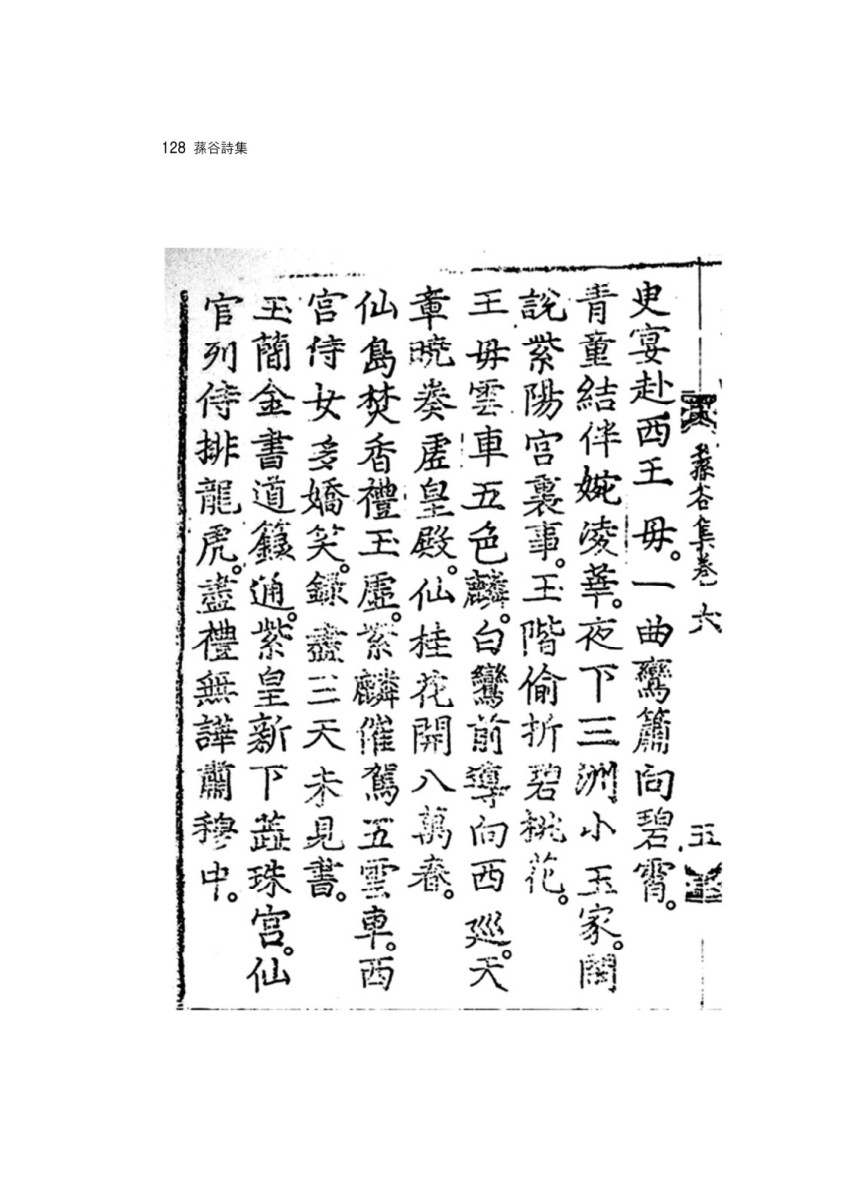 128 蓀谷詩集
蓀谷集卷六
五
史宴赴西王母。一曲鸞簫向碧霄。
青童結伴婉凌華。夜下三洲小玉家。閑
說紫陽宮裏事。玉階偷折碧桃花。
王母雲車五色麟。白鸞前導向西巡。天
章曉奏虛皇殿。仙桂花開八萬春。
仙島焚香禮玉虛。紫麟催駕五雲車。西
宮侍女多嬌笑。錄盡三天未見書。
玉簡金書道籙通。紫皇新下蘂珠宮。仙
官列侍排龍虎。盡禮無譁肅穆中。